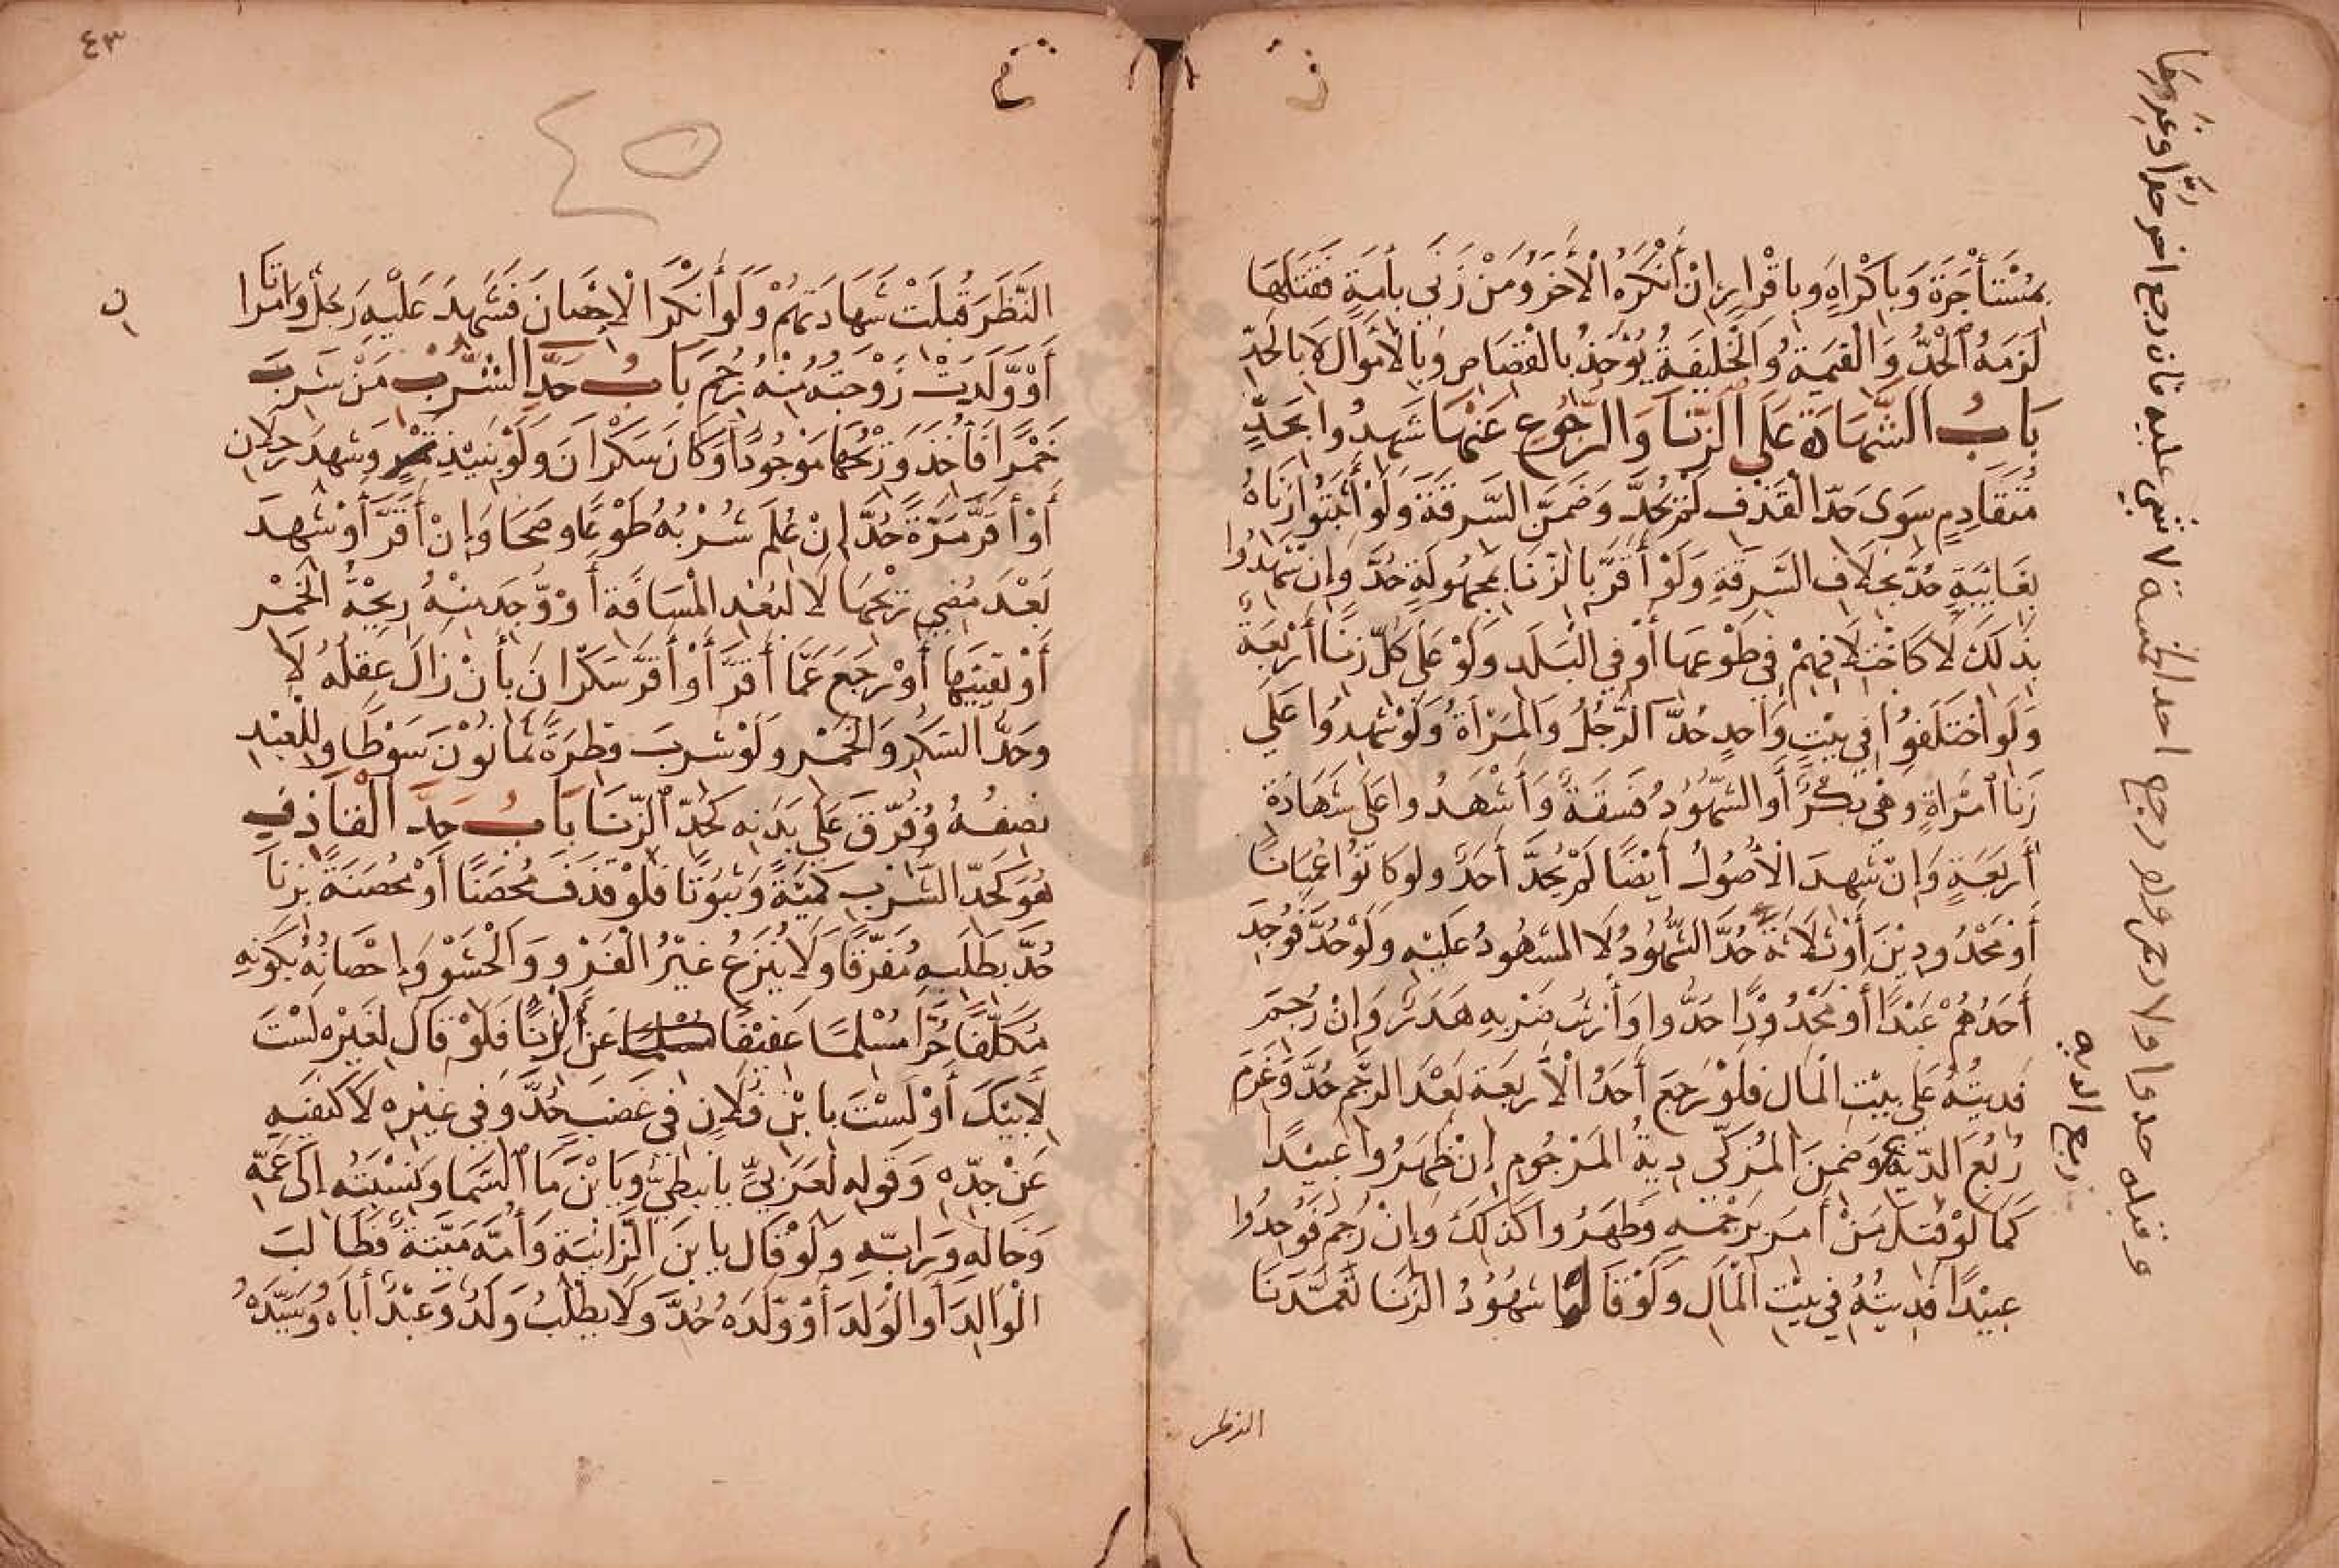 بمُسْتَأْجَرَةٍ وَبِاكْرَاهٍ وَبِاقْرَارٍ اِنْ اَنْكَرَهُ الْآخَرُ وَمَنْ زَنَى بأَمَةٍ فَقَتَلَهَا
لَزِمَهُ الْحَدُّ وَالْقِيمَةُ وَالْخَلِيفَةُ يُؤْخَذُ بالْقِصَاصِ وَبِالْأَمْوَالِ لَا بالْحَدِّ
بَابُ الشَّهَادَةِ عَلَى الزِّنَا وَالرُّجُوعِ عَنْهَا شَهِدُوا بحَدٍّ
مُتَقَادِمٍ سِوَى حَدِّ الْقَذْفِ لَمْ يُحَدَّ وَضَمِنَ السَّرِقَةَ وَلَوْ أَثْبَتُوا زِنَاهُ
بِغَائِبَةٍ حُدَّ بِخِلَافِ السَّرِقَةِ وَلَوْ أَقَرَّ بِالزِّنَا بِمَجْهُولَةٍ حُدَّ وَإِنْ شَهِدُوا
بذَلِكَ لَا كَاخْتِلَافِهِمْ فِي طَوْعِهَا أَوْ فِي الْبَلَدِ وَلَوْ عَلَى كُلِّ زِنًا أَرْبَعَةٌ
وَلَوِ اخْتَلَفُوا فِي بَيْتٍ وَاحِدٍ حُدَّ الرَّجُلُ وَالْمَرْأَةُ وَلَوْ شَهِدُوا عَلَى
زِنَا امْرَأَةٍ وهْيَ بِكْرٌ أَوِ الشُّهُودُ فَسَقَةٌ وَأَشْهَدُوا عَلَى شَهَادَةِ
أَرْبَعَةٍ وَإِنْ شَهِدَ الْأُصُولُ أَيْضًا لَمْ يُحَدَّ أَحَدٌ ولوكَانُوا عُمْيَانًا
أَوْ مَحْدُودِينَ أَوْ ثَلَاثَةً حُدَّ الشُّهُودُ لَا الْمَشْهُودُ عَلَيْهِ وَلَوْ حُدَّ فَوُجِدَ
أَحَدُهُمْ عَبْدًا أَوْ مَحْدُودًا حُدُّوا وَأَرْشُ ضَرْبِهِ هَدَرٌ وَإِنْ رُجِمَ
فَدِيَتُهُ عَلَى بَيْتِ الْمَالِ فَلَوْ رَجَعَ أَحَدُ الْأَرْبَعَةِ بَعْدَ الرَّجْمِ حُدَّ وَغَرِمَ
رُبُعَ الدِّيَةِ وَضَمِنَ الْمُزَكِّي دِيَةَ الْمَرْجُومِ إِنْ ظَهَرُوا عَبِيْدًا
كَمَا لَوْ قُتِلَ مَنْ أُمِرَ بِرَجْمِهِ وَظَهَرُوا كَذَلِكَ وَإِنْ رُجِمَ فَوُجِدُوا
عَبِيْدًا فَدِيَتُهُ فِي بَيْتِ الْمَالِ وَلَوْ قَالَ شُهُوْدُ الزِّنَا تَعَمَّدْنَا
النظر
فان رجع اخر حدا وغرما
احد الخمسة لا شي عليه
وقبله حدوا ولا رجم ولو رجع
ربع الدية
٤٣
٤٥
النَّظَرَ قُبِلَتْ شَهَادَتُهُمْ وَلَوْ أَنْكَرَ الْإِحْصَانَ فَشَهِدَ عَلَيْهِ رَجُلٌ وَامْرَأَتَانِ
أَوْ وَلَدَتْ زَوْجَتُهُ مِنْهُ رُجِمَ بَابُ حَدِّ الشُّرْبِ مَنْ شَرِبَ
خَمْرًا فَأُخِذَ وَرِيْحُهَا مَوْجُودٌ أَوْ كَانَ سَكْرَانَ وَلَوْ بِنَبِيْذِ تَمْرٍ وَشَهِدَ رَجُلَانِ
أَوْ أَقَرَّ مَرَّةً حُدَّ إِنْ عُلِمَ شُرْبُهُ طَوْعًا وصَحَا وَإِنْ أَقَرَّ أَوْ شَهِدَ
بَعْدَ مُضِيِّ رِيْحِهَا لَا لِبُعْدِ الْمَسَافَةِ أَوْ وُجِدَ مِنْهُ رِيْحَةُ الْخَمْرِ
أَوْ تَقَيَّئَهَا أَوْ رَجَعَ عَمَّا أَقَرَّ أَوْ أَقَرَّ سَكْرَانَ بأَنْ زَالَ عَقْلُهُ لَا
وَحَدُّ السَّكَرِ وَالْخَمْرِ وَلَوْ شَرِبَ قَطْرَةً ثَمَانُوْنَ سَوْطًا وَلِلْعَبْدِ
نِصْفُهُ وَفُرِّقَ عَلَى بَدَنِهِ كَحَدِّ الزِّنَا بَابُ حَدِّ الْقَاذِفِ
هُوَ كَحَدِّ الشُّرْبِ كَمِّيَّةً وَثُبُوتًا فَلَوْ قَذَفَ مُحْصَنًا أَوْ مُحْصَنَةً بِزِنَا
حُدَّ بِطَلَبِهِ مُفَرَّقًا وَلَا يُنْزَعُ غَيْرُ الْفَرْوِ وَالْحَشْوِ وَإِحْصَانُهُ بِكَوْنِهِ
مُكَلَّفًا حُرًّا مُسْلِمًا عَفِيْفًا عَنِ الزِّنَا فَلَوْ قَالَ لِغَيْرِهِ لَسْتَ
لِأَبِيْكَ أَوْ لَسْتَ بابْنِ فُلَانٍ فِي غَضَبٍ حُدَّ وَفِي غَيْرِهِ لَا كَنَفْيِهِ
عَنْ جَدِّهِ وَقَوْلِهِ لِعَرَبِيٍّ يا نَبَطِيُّ وَيَا ابْنَ مَاءِ السَّمَا وَنِسْبَتِهِ إِلَى عَمِّهِ
وَخَالِهِ وَرَابِّهِ وَلَوْ قَالَ يا بْنَ الزَّانِيَةِ وَأُمُّهُ مَيِّتَةٌ فَطَالَبَ
الْوَالِدُ أَوِ الْوَلَدُ أَوْ وَلَدُهُ حُدَّ وَلَا يَطْلُبُ وَلَدٌ وَعَبْدٌ أَبَاهُ وَسَيِّدَهُ